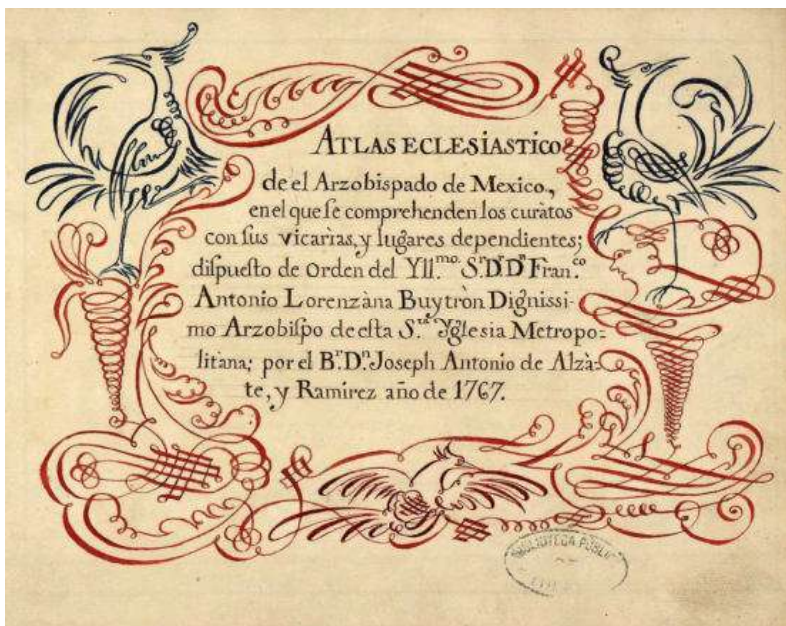 ATLAS ECLESIASTICO
de el Arzobispado de Mexico,
en el que se comprehenden los curàtos
con sus vicarìas, y lugares dependientes;
dispuesto de Orden del Yll.mo S.r D.r D.n Fran.co
Antonio Lorenzàna Buytròn Dignissi-
mo Arzobispo de esta S.ta Yglesia Metropo=
litàna; por el B.r D.n Joseph Antonio de Alzà=
te, y Ramirez año de 1767.
BIBLIOTECA PÚBLICA